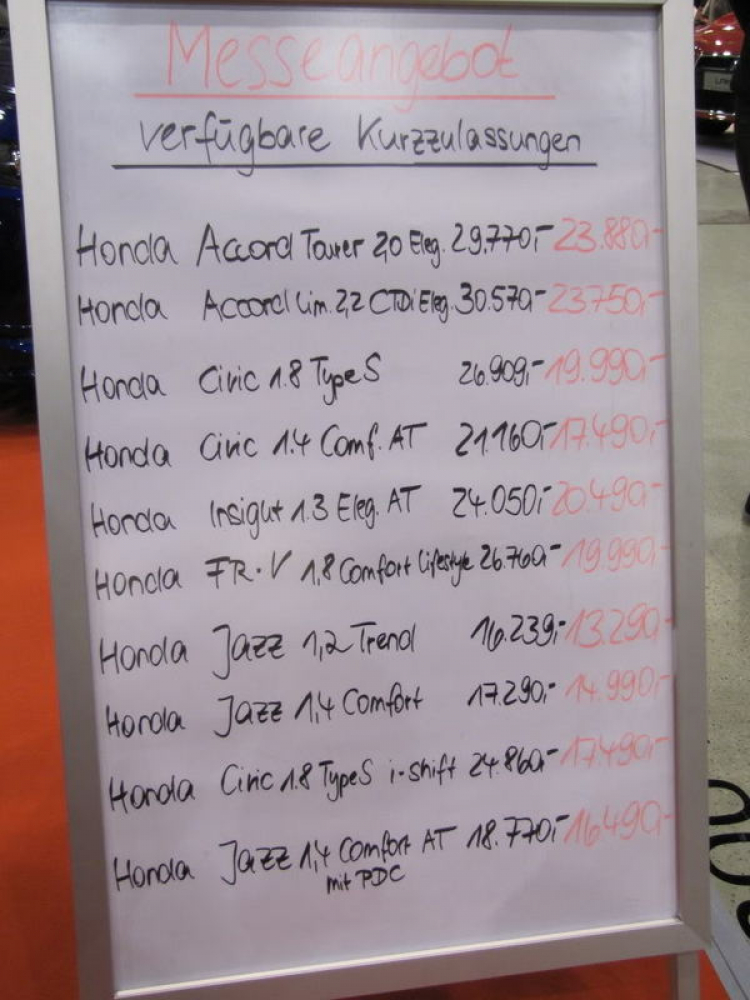 Messeangebot
verfügbare Kurzzulassungen
Honda Accord Tourer 2,0 Eleg. 29.770,- 23.880,-
Honda Accord Lim. 2,2 CTDi Eleg. 30.570,- 23.750,-
Honda Civic 1.8 Type S 26.909,- 19.990,-
Honda Civic 1.4 Comf. AT 21.160,- 17.490,-
Honda Insigut 1.3 Eleg. AT 24.050,- 20.490,-
Honda FR-V 1,8 Comfort Lifestyle 26.760,- 19.990,-
Honda Jazz 1,2 Trend 16.239,- 13.290,-
Honda Jazz 1,4 Comfort 17.290,- 14.990,-
Honda Civic 1.8 Type S i-shift 24.860,- 17.490,-
Honda Jazz 1,4 Comfort AT 18.770,- 16.490,-
mit PDC